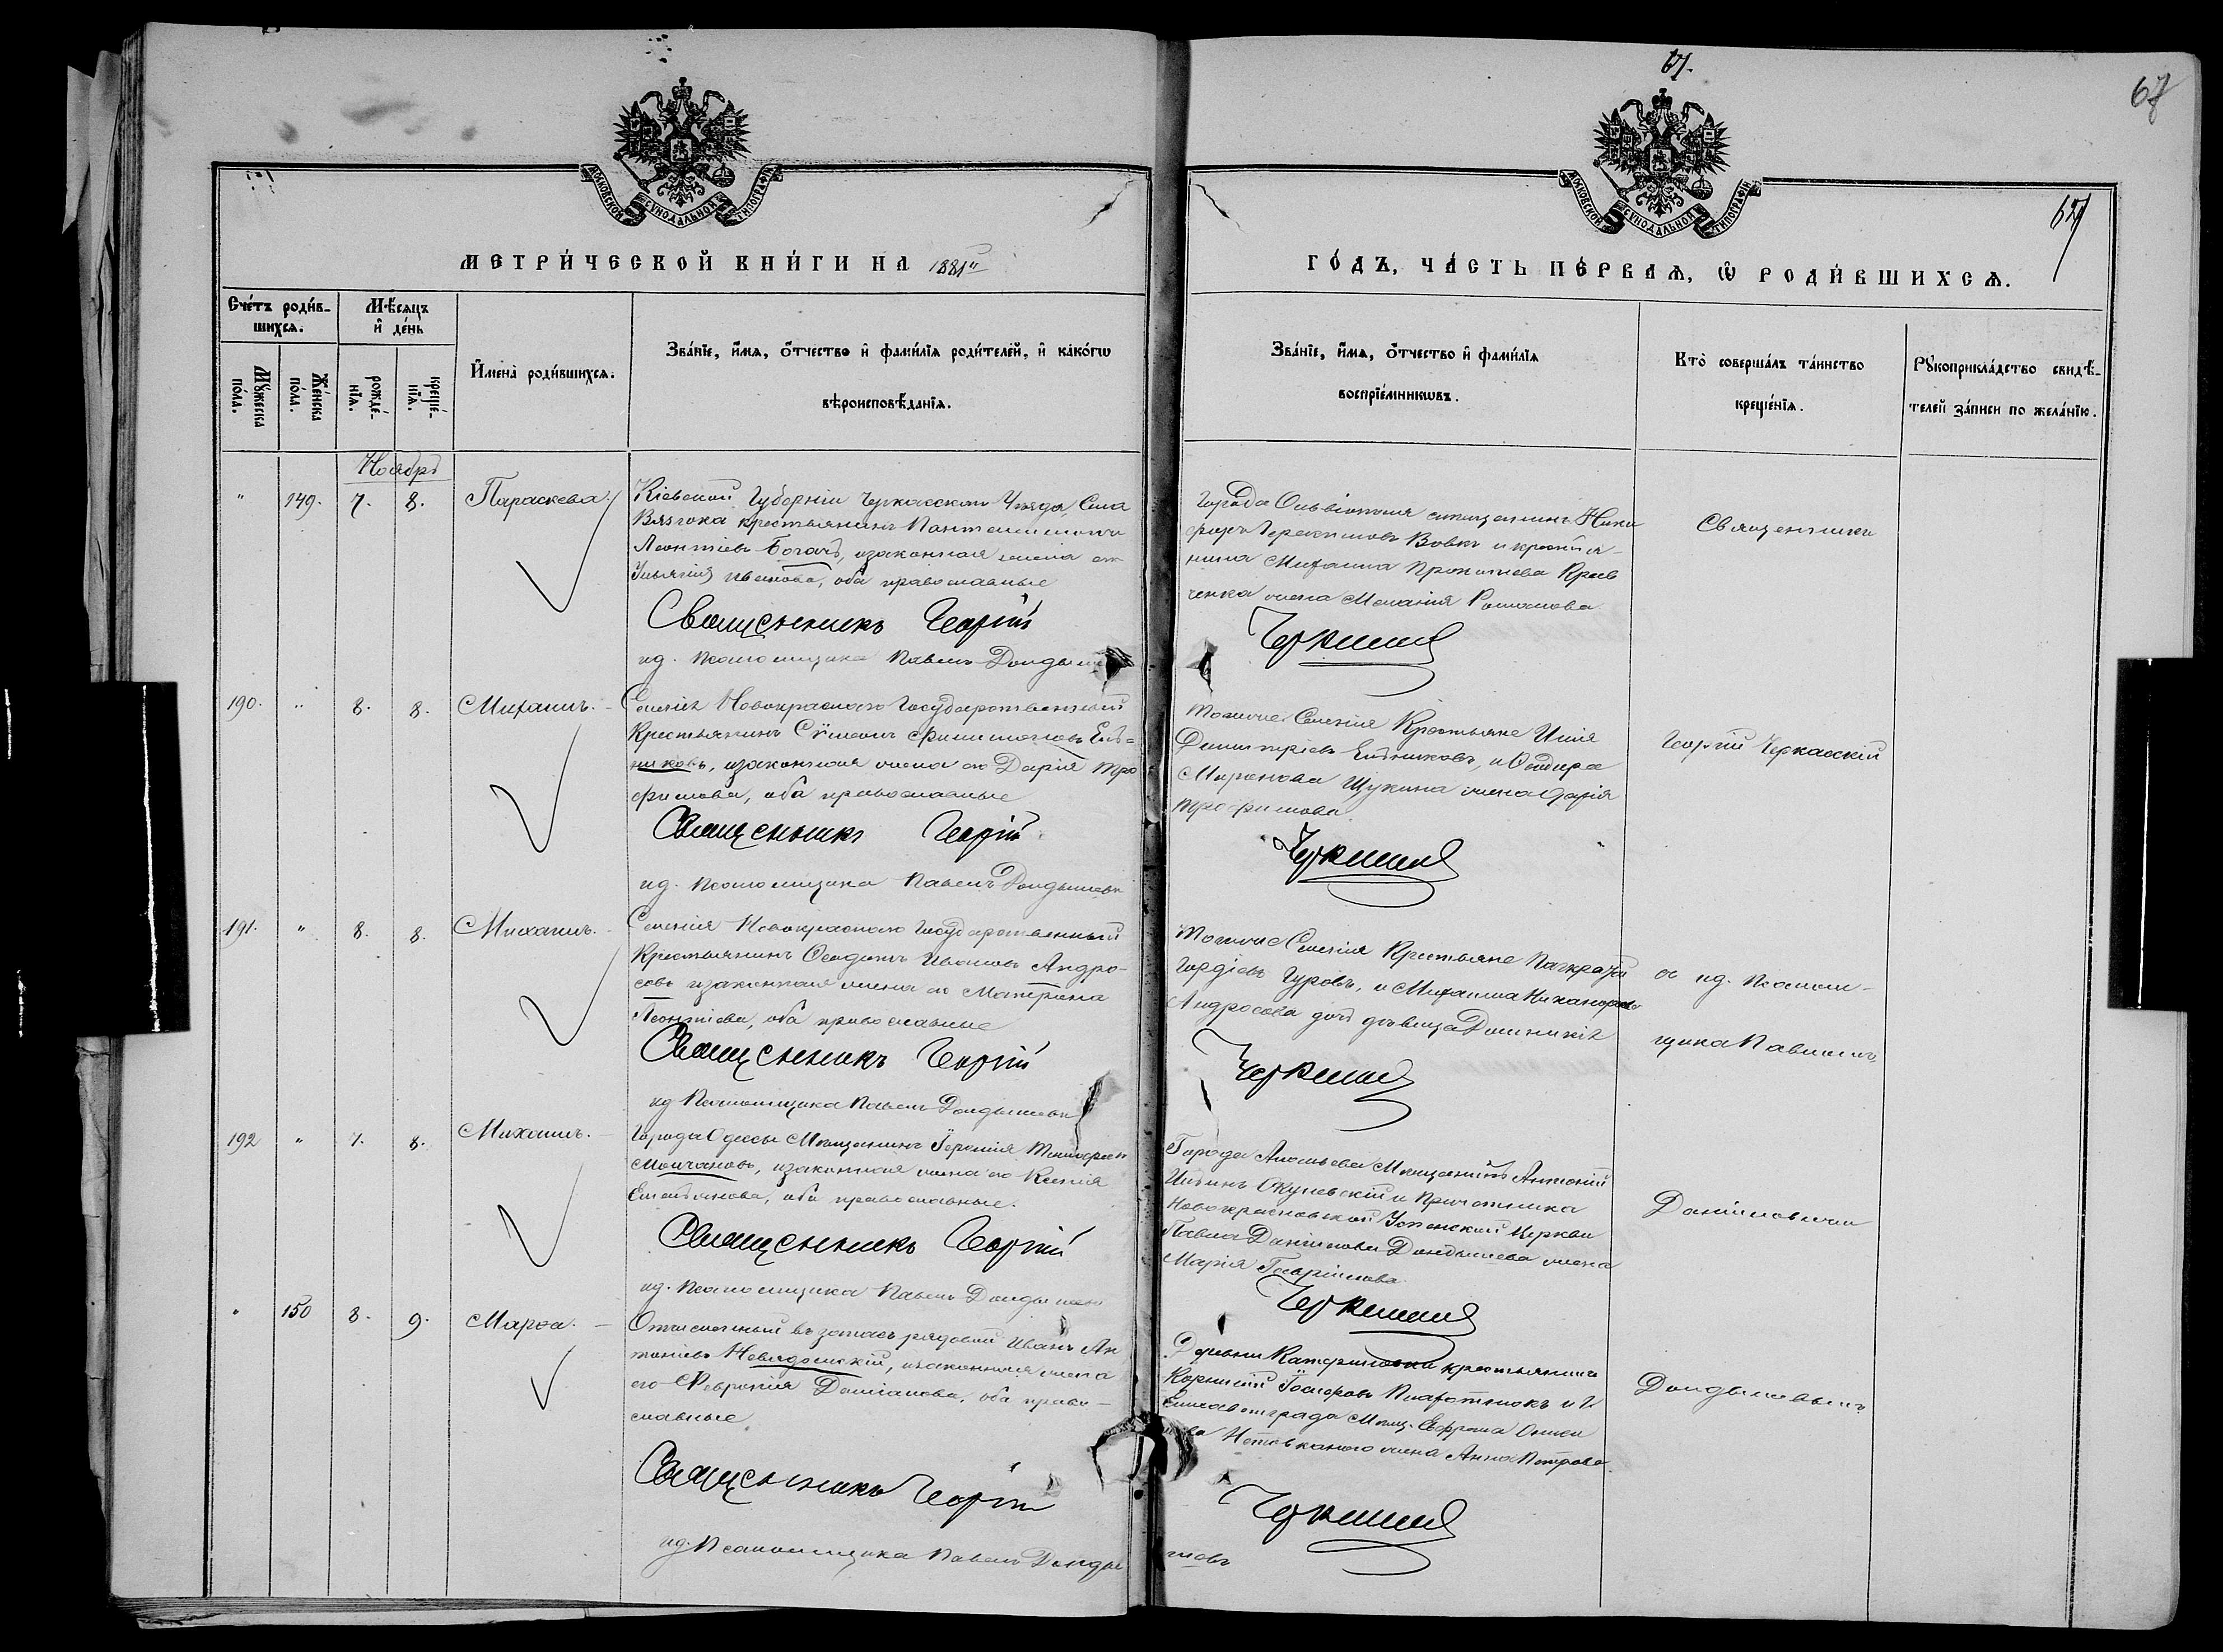 67.
67
67
МОСКОВСКОЙ СѴНОДАЛЬНОЙ ТИПОГРАФІИ
МОСКОВСКОЙ СѴНОДАЛЬНОЙ ТИПОГРАФІИ
МЕТРИ́ЧЕСКОЙ КНИ́ГИ НА 1881й
ГО́ДЪ, ЧА́СТЬ ПЕ́РВАѦ, Ѡ РОДИ́ВШИХСѦ.
Сче́тъ роди́в-
шихсѧ.
Мꙋ́жеска
по́ла.
Же́нска
по́ла.
Мѣ́сѧцъ
и҆ де́нь
рожде́-
нїѧ.
креще́-
нїѧ.
И҆мена̀ роди́вшихсѧ.
Зва́нїе, и҆́мѧ, ѻ҆́тчество и҆ фами́лїѧ роди́телей, и҆ како́гѡ
вѣроисповѣ́данїѧ.
Зва́нїе, и҆́мѧ, ѻ҆́тчество и҆ фами́лїѧ
воспрїе́мникѡвъ.
Кто̀ соверша́лъ та́инство
креще́нїѧ.
Рꙋкоприкла́дство свидѣ́-
телей за́писи по жела́нїю.
Ноябрь
" 149. 7. 8. Параскева.
Кіевской Губерніи Черкасскаго Уѣзда, Села
Вязовка крестьянинъ
Леонтіевъ Богачъ, и законная жена его
Иванова, оба православные
Священникъ Георгій
ид. Псаломщика Павелъ
Города Ольвіополя мещанинъ Ники
форъ Герасимовъ Вовкъ и крестья-
нина Михаила Прокопіева Крав
ченка жена Меланія Романова.
Черкаскій
Священникъ
190. " 8. 8. Михаилъ.
Селенія Новокраснаго Государственный
Крестьянинъ Сѵмеонъ Филимоновъ Ель-
никовъ, и законная жена его Дарія Тро
фимова, оба православные
Священникъ Георгій
ид. Псаломщика Павелъ Дондышевъ
Того же Селенія Крестьяне Илія
Димитріевъ Ельниковъ, и Ѳеодора
Миронова Щукина жена Дарія
Трофимова
Черкаскій
Георгій Черкасскій
191. " 8. 8. Михаилъ.
Селенія Новокраснаго Государственный
Крестьянинъ Ѳеодотъ Ивановъ Андро-
совъ и законная жена его Матрона
Леонтіева, оба православные
Священникъ Георгій
ид Псаломщика Павелъ Дондышевъ
Того же Селенія Крестьяне Панкратій
Гордіевъ Гуровъ, и Михаила Никанорова
Андросова дочь дѣвица Домникія
Черкаскій
съ ид. Псалом-
щика Павломъ
192 " 7. 8. Михаилъ.
Города Одессы Мѣщанинъ Іеремія Тимофеев
Молчановъ, и законная жена его Ксенія
Емельянова, оба православные.
Священникъ Георгій
ид. Псаломщика Павелъ
Города Ананьева Мѣщанинъ Антоній
Окулевскій и Причетника
Новокрасновской Успенской Церкви
Павла Даніилова Дондышева жена
Марія Гавріилова
Черкаскій
Даніиловичемъ
" 150 8. 9. Марѳа.
Отпускный въ запасъ рядовый Иванъ Ан
тоніевъ Невядомскій, и законная жена
его Ѳевронія Даміанова, оба право-
славные
Священникъ Георгій
ид. Псаломщика Павелъ Донды
шевъ
Деревни Катериновки крестьянинъ
Корнилій Іосифовъ Плахотнюкъ и Г.
Елисаветграда Мѣщ. Евфрема
жена Анна Петрова
Черкаскій
Дондышевымъ